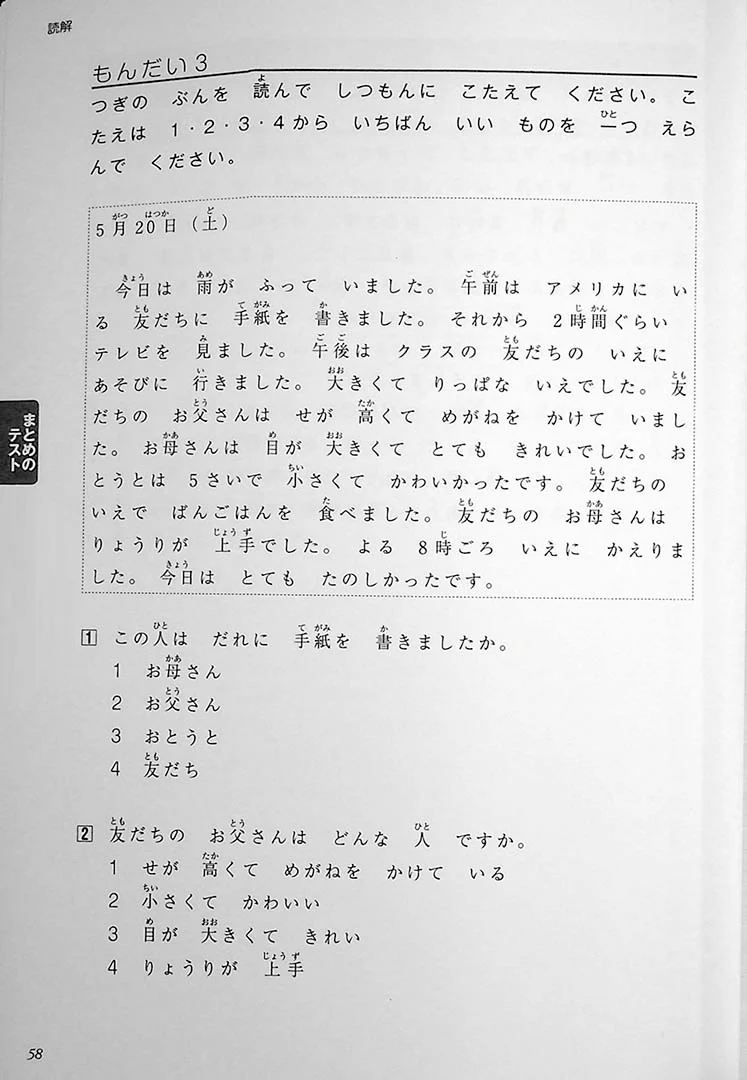 読解
もんだい3
つぎの ぶんを 読んで しつもんに こたえて ください。 こ
たえは 1・2・3・4から いちばん いい ものを 一つ えら
んで ください。
5月20日(土)
今日は 雨が ふって いました。 午前は アメリカに い
る 友だちに 手紙を 書きました。 それから 2時間ぐらい
テレビを 見ました。 午後は クラスの 友だちの いえに
あそびに 行きました。 大きくて りっぱな いえでした。 友
だちの お父さんは せが 高くて めがねを かけて いまし
た。 お母さんは 目が 大きくて とても きれいでした。 お
とうとは 5さいで 小さくて かわいかったです。 友だちの
いえで ばんごはんを 食べました。 友だちの お母さんは
りょうりが 上手でした。 よる 8時ごろ いえに かえりま
した。 今日は とても たのしかったです。
まとめの
テスト
1 この人は だれに 手紙を 書きましたか。
1 お母さん
2 お父さん
3 おとうと
4 友だち
2 友だちの お父さんは どんな 人 ですか。
1 せが 高くて めがねを かけて いる
2 小さくて かわいい
3 目が 大きくて きれい
4 りょうりが 上手
58